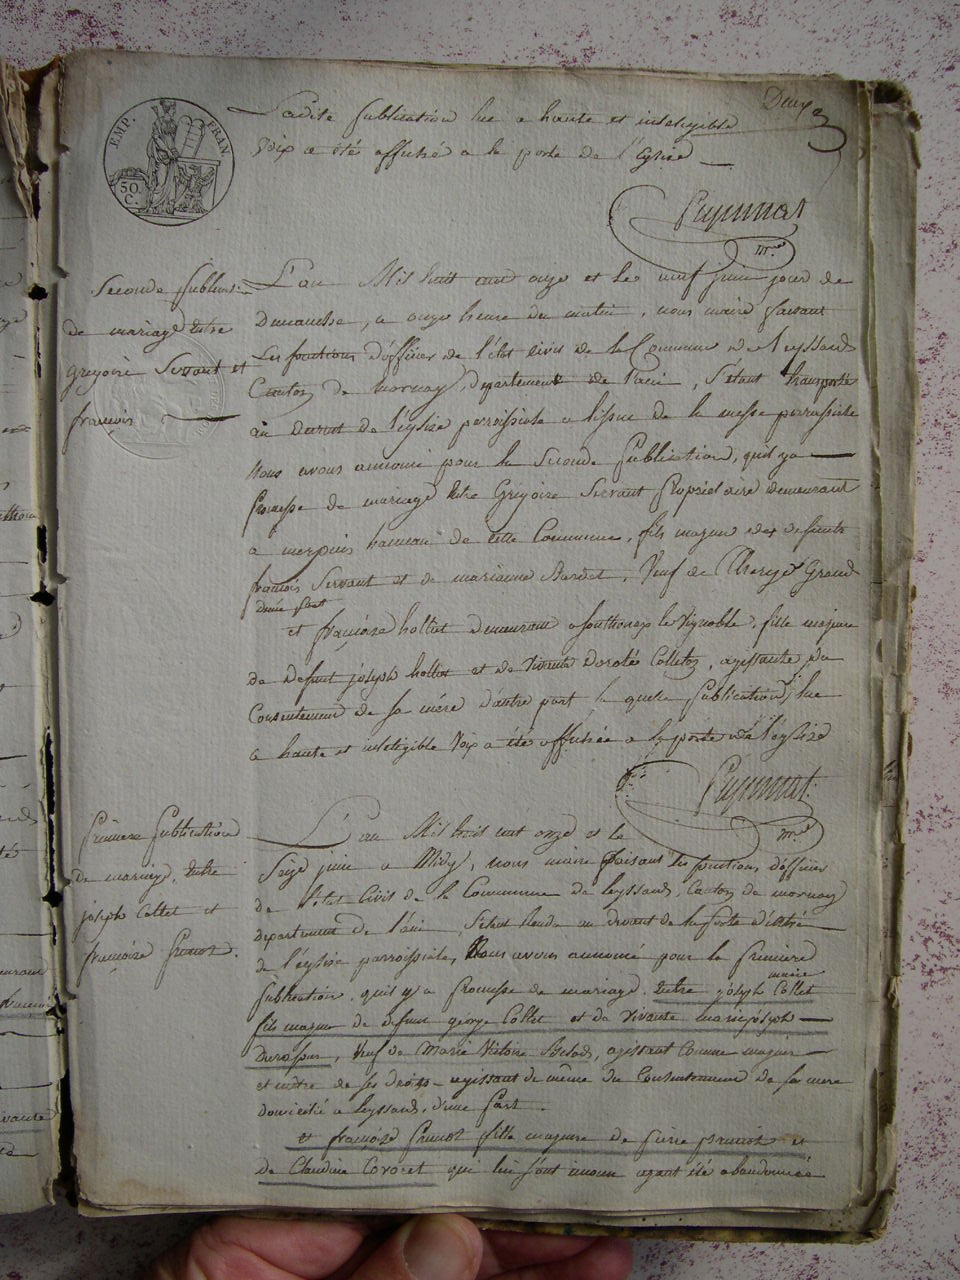 Deux
EMP. FRAN.
50. C.
Ladite publication lue a haute et inteligible
Voix a été affiché a la porte de l'Eglise
mre
Seconde publicat.
de mariage entre
gregoire Servant et
francois
L'an Mil huit cent onze et le neuf juin jour de
Dimanche, a onze heure du matin, nous maire faisant
Les fonctions d'officier de l'état civil de la Commune de Leyssard
Canton de mornay, departement de l'ain, s'étant transporté
au devant de l'eglise parroissiale a lissue de la messe parroissiale
Nous avons annoncé pour la seconde Publication, quil ya
Promesse de mariage entre Grégoire Servant Propriétaire demeurant
a hameau de cette Commune, fils majeur des defunts
francois Servant et de marianne, Veuf de
d'une part
et françoise hollut demeurant a le Vignoble, fille majeure
de defunt joseph hollut et de Vivante Colleton, agissante du
Consentement de sa mére d'autre part la quelle Publication lue
a haute et inteligible Voix a été affichée a la porte de l'église
mre
premiere publication
de mariage, entre
joseph Collet et
françoise prunot.
L'an Mil huit cent onze et le
Seize juin a Midy, nous maire faisant les fonctions d'officier
de l'état Civil de la Commune de leyssard, Canton de mornay
departement de l'ain, s'étant rendu au devant de la porte d'entrée
de l'église parroissiale, Nous avons annoncé pour la premiere
publication, quil y a promesse de mariage, entre joseph Collet
fils majeur de defunt george Collet et de vivante marie joseph
, Veuf de Marie Victoire, agissant Comme majeur
et mètre de ses droits agissant de même du Consentement de sa mere
domicilié a leyssard, d'une part.
et françoise prunot fille majeure de prunot et
de Claudine qui lui sont inconn ayant été abandonnée